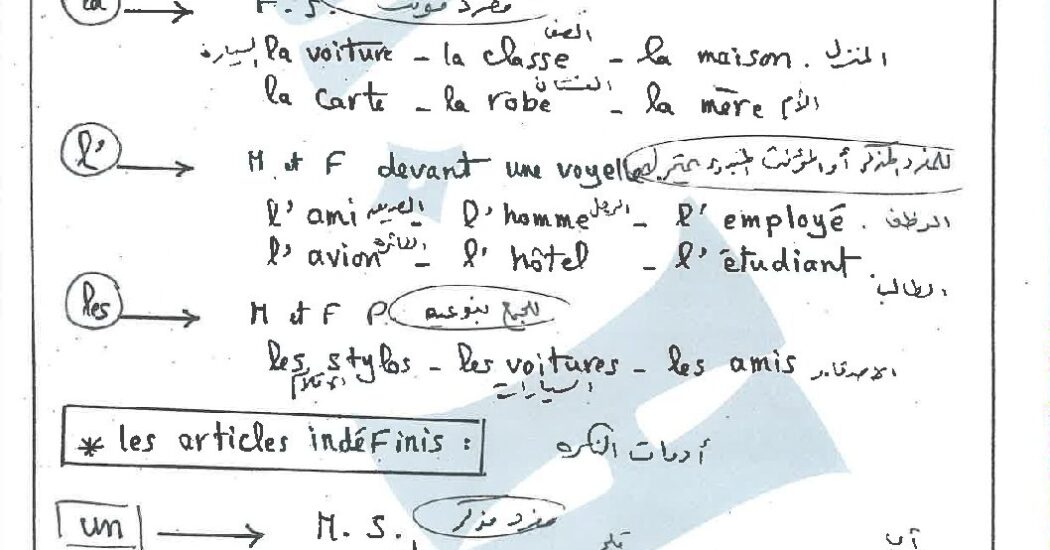 la → F. S. مفرد مؤنث
السيارة la voiture - la classe الصف - la maison . المنزل
la carte - la robe الفستان - la mère الأم
l' → M et F devant une voyelle للمفرد المذكر أو المؤنث
l' ami l' homme الرجل - l' employé . الموظف
l' avion الطائرة - l' hôtel - l' étudiant . الطالب
les → M et F P. للجمع بنوعيه
les stylos - les voitures - les amis الاصدقاء
الأقلام السيارات
* les articles indéfinis : أدوات النكره
un → M. S. مفرد مذكر